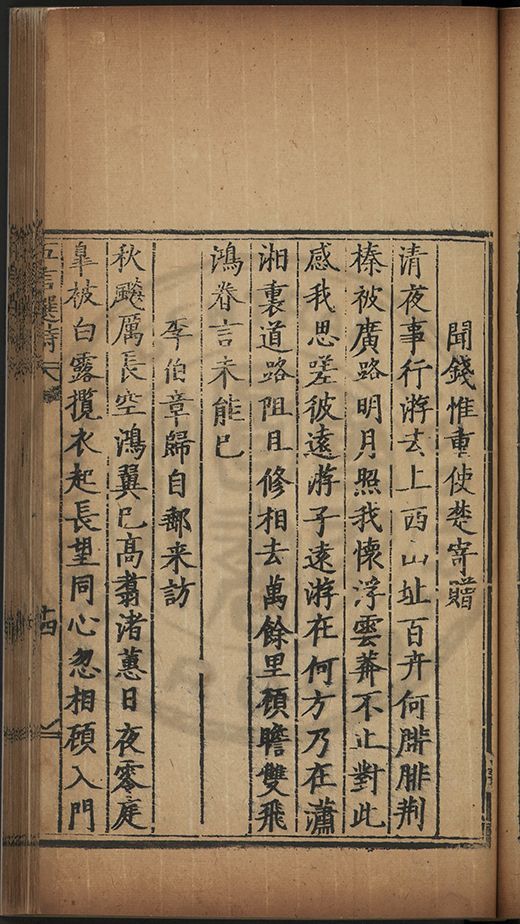 聞錢惟重使楚寄贈
清夜事行游去上西山址百卉何腓腓荆
榛被廣路明月照我懷浮雲莽不止對此
感我思嗟彼遠游子遠游在何方乃在瀟
湘裏道路阻且修相去萬餘里顧瞻雙飛
鴻眷言未能已
李伯章歸自鄱来訪
秋飈厲長空鴻翼已髙翥渚蕙日夜零庭
臯被白露攬衣起長望同心忽相碩入門
五言選詩
十四